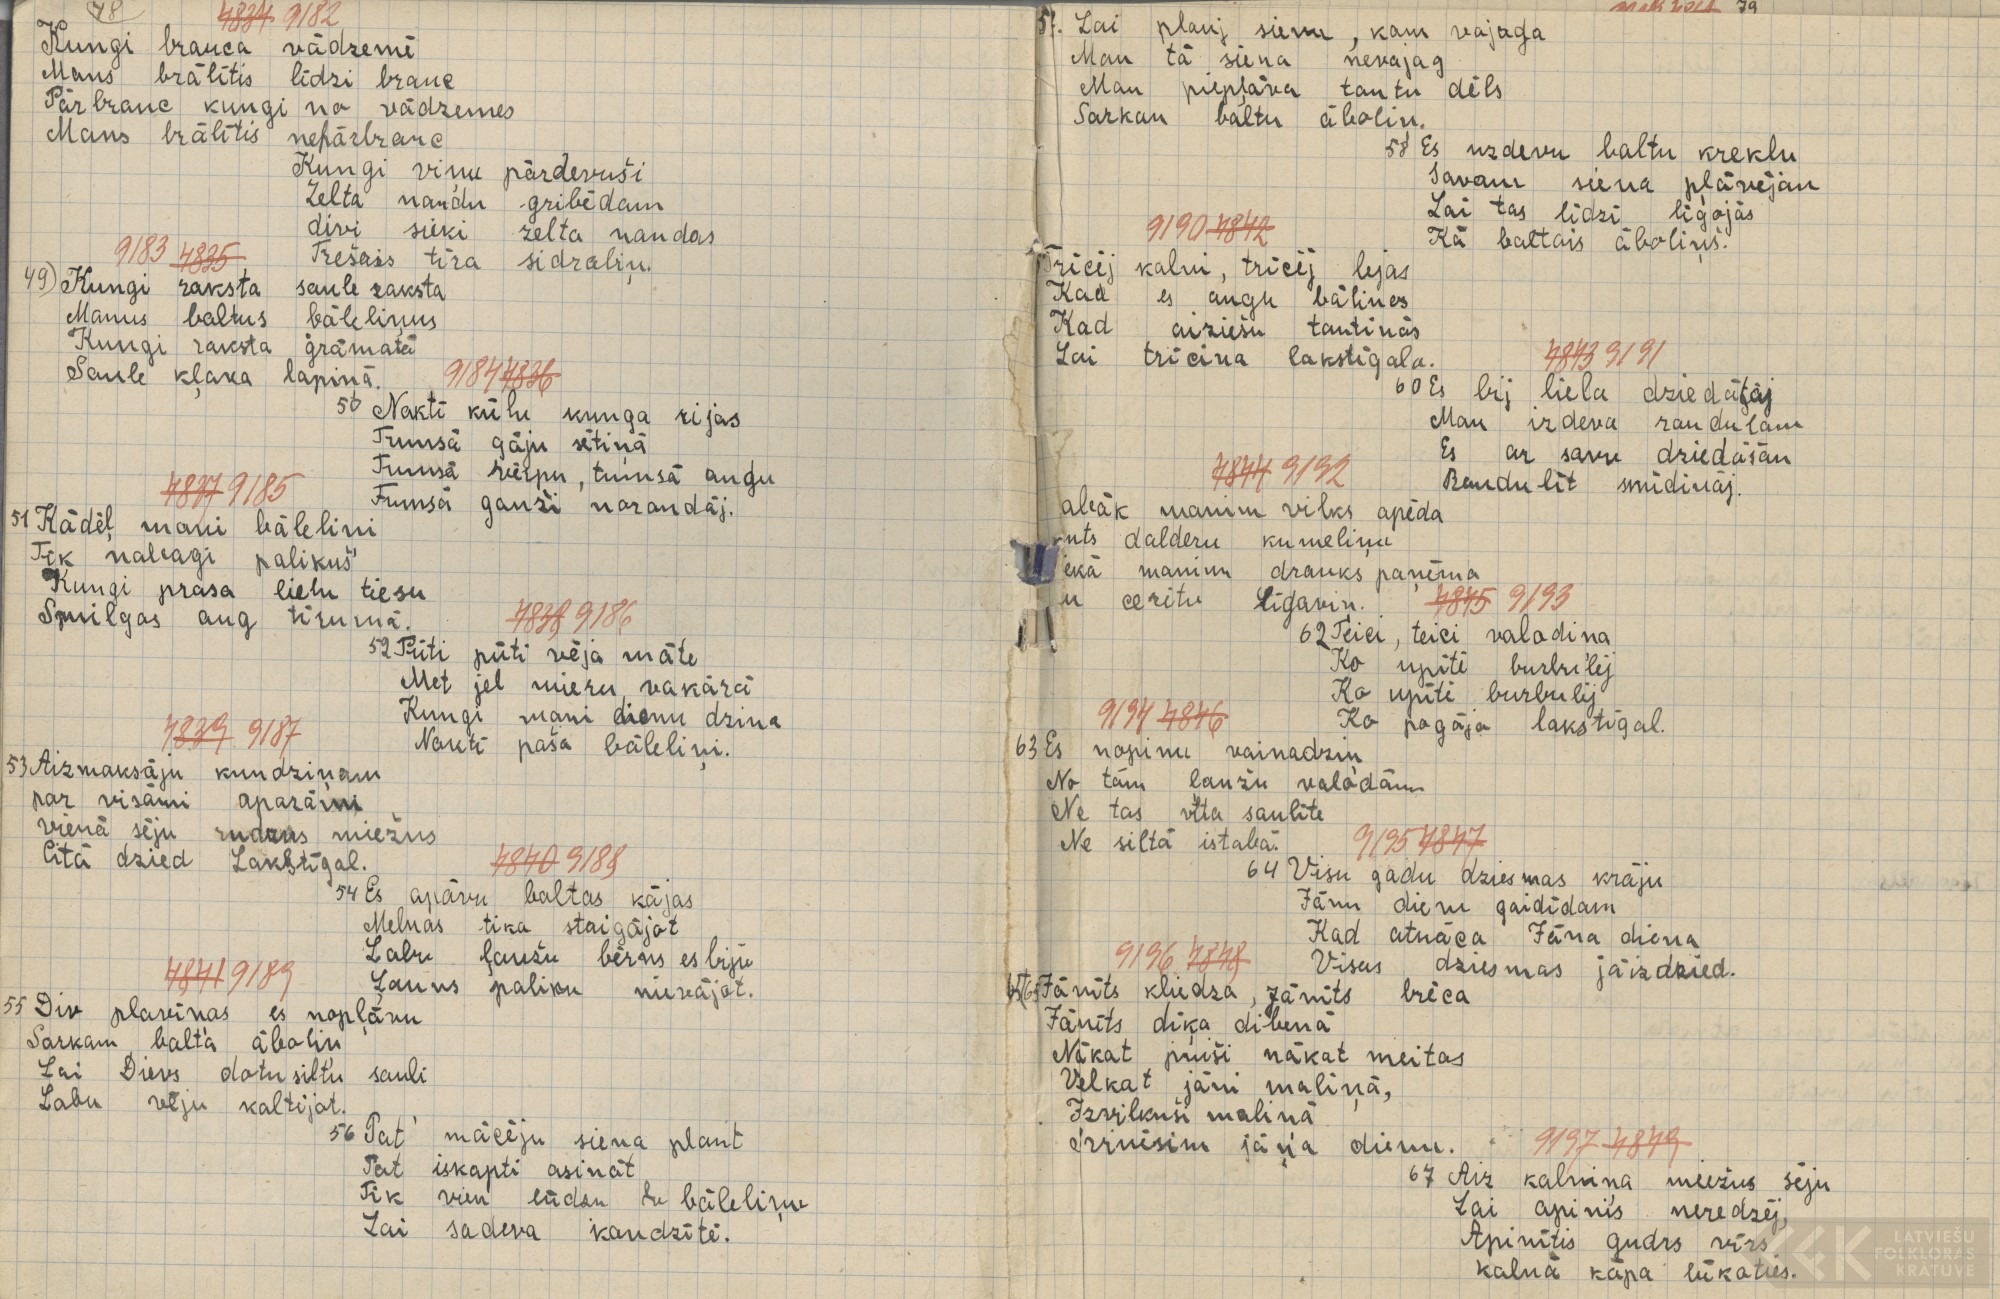 78
4834 9182
Kungi brauca vādzemē
Mans brālītis līdzi brauc
Pārbrauc kungi no vādzemes
Mans brālītis nepārbrauc
Kungi viņu pārdevuši
Zelta naudu gribēdam
divi sieki zelta naudas
Trešais tīra sidraliņ.
9183 4835
49) Kungi raksta saule raksta
Manus baltus bāleliņus
Kungi raksta grāmatā
Saule kļava lapiņā.
9184 4836
50 Naktī kūlu kunga rijas
Tumsā gāju sētiņā
Tumsā vērpu, tumsā augu
Tumsā gauži noraudāj.
4837 9185
51 Kādēļ mani bāleliņi
Tik nabagi palikuš
Kungi prasa lielu tiesu
Smilgas aug tīrumā.
4838 9186
52 Pūti pūti vēja māte
Met jel mieru vakārā
Kungi mani dienu dzina
Naktī paša bāleliņi.
4839 9187
53 Aizmaksāju kundziņam
par visāmi aparām
vienā sēju rudzus miežus
Citā dzied Lakstīgal.
4840 9188
54 Es apāvu baltas kājas
Melnas tika staigājot
Labu ļaužu bērns es biju
Ļauns paliku nievājot.
4841 9189
55 Div plaviņas es nopļāvu
Sarkam balta āboliņ
Lai Dievs dotu siltu sauli
Labu vēju kaltējot.
56 Pat mācēju siena plaut
Pat iskapti asināt
Tik vien lūdzu bāleliņu
Lai sadeva kaudzītē.
79
57. Lai plauj sienu, kam vajaga
Man tā siena nevajag
Man piepļāva tautu dēls
Sarkan baltu āboliņ.
58 Es uzdevu baltu kreklu
Savam siena plāvējam
Lai tas līdzi līgojās
Kā baltais āboliņš.
9190 4842
Trīcēj kalni, trīcēj lejas
Kad es augu bāliņos
Kad aiziešu tautiņās
Lai trīcina lakstīgala.
4843 9191
60 Es bij liela dziedātāj
Man izdeva raudulam
Es ar savu dziedāšan
Raudulīt smīdināj.
4844 9192
abāk manim vilks apēda
mts dalderu kumeliņu
ekā manim drauks paņēma
u cerītu līgaviņ.
4845 9193
62 Teici, teici valodiņa
Ko upītē burbulēj
Ko upītē burbulēj
Ko pogāja lakstīgal.
9194 4846
63 Es nopinu vainadziņ
No tām ļaužu valodām
Ne tas vīta saulīte
Ne siltā istabā.
9195 4847
64 Visu gadu dziesmas krāju
Jānu dienu gaidīdam
Kad atnāca Jāņa diena
Visas dziesmas jāizdzied.
9196 4848
65 Jānīts kliedza, Jānīts brēca
Jānīts dīķa dibenā
Nākat puiši nākat meitas
Velkat jāni maliņā,
Izvilkuši maliņā
Svinēsim jāņa dienu.
9197 4849
67 Aiz kalniņa miežus sēju
Lai apinis neredzēj,
Apinītis gudrs vīrs
kalnā kāpa lūkoties.
LATVIEŠU
FOLKLORAS
KRĀTUVE